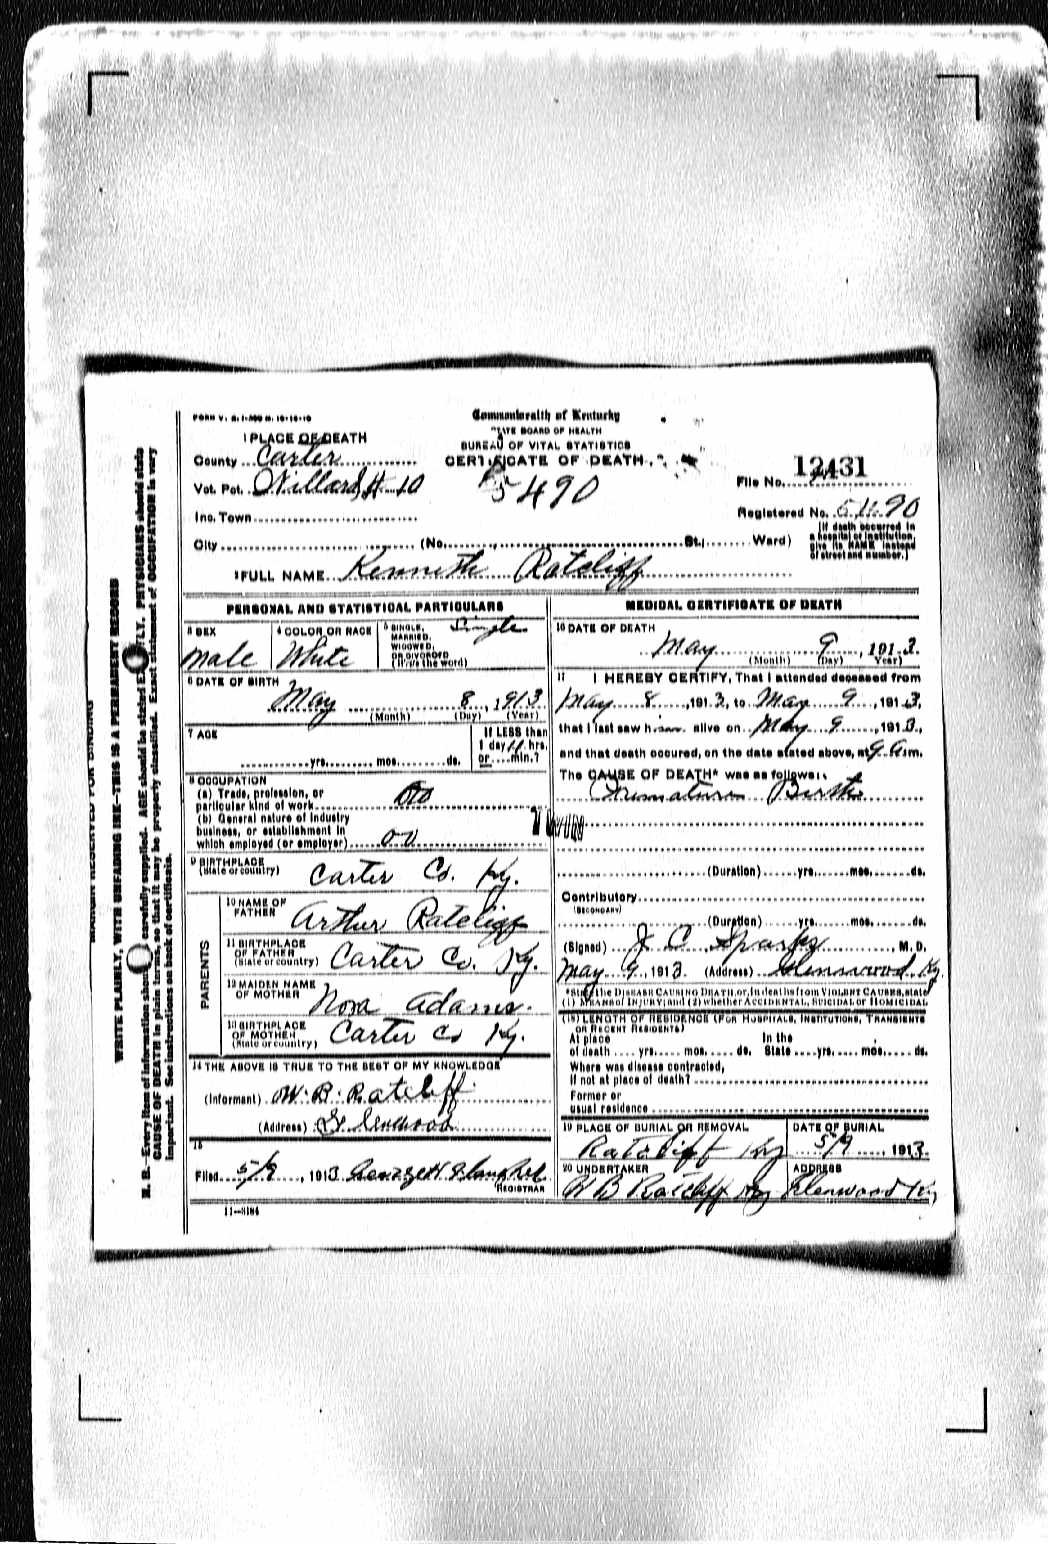 FORM V. S. 1-
Commonwealth of Kentucky
STATE BOARD OF HEALTH
BUREAU OF VITAL STATISTICS
CERTIFICATE OF DEARTH
1 PLACE OF DEATH
County Carter
Vot. Pct. Willard # 10
5490
12431
File No.
Registered No. 5490
Inc. Town
City (No. St.; Ward)
(If death occurred in
a hospital or institution,
give its NAME instead
of street and number.)
2 FULL NAME Kenneth Ratcliff
PERSONAL AND STATISTICAL PARTICULARS
3 SEX
Male
4 COLOR OR RACE
White
5 SINGLE,
MARRIED,
WIDOWED,
OR DIVORCED
(Write the word)
Single
6 DATE OF BIRTH
May 8, 1913
(Month) (Day) (Year)
7 AGE
yrs. mos. ds.
If LESS than
1 day 11 hrs.
or min.?
8 OCCUPATION
(a) Trade, profession, or
particular kind of work
(b) General nature of Industry
business, or establishment in
which employed (or employer)
9 BIRTHPLACE
(State or country)
Carter Co. Ky.
PARENTS
10 NAME OF
FATHER
Arthur Ratcliff
11 BIRTHPLACE
OF FATHER
(State or country)
Carter Co. Ky.
12 MAIDEN NAME
OF MOTHER
Nora Adams.
13 BIRTHPLACE
OF MOTHER
(State or country)
Carter Co Ky.
14 THE ABOVE IS TRUE TO THE BEST OF MY KNOWLEDGE
(Informant) W. B. Ratcliff
(Address) Glenwood
15
Filed 5/9, 1913
REGISTRAR
11-3184
MEDICAL CERTIFICATE OF DEATH
16 DATE OF DEATH
May 9, 1913.
(Month) (Day) (Year)
17 I HEREBY CERTIFY, That I attended deceased from
May 8, 1913, to May 9, 1913,
that I last saw him alive on May 9, 1913,
and that death occured, on the date stated above, at 9 a.m.
The CAUSE OF DEATH* was as follows:
Premature Birth
Twin
(Duration) yrs. mos. ds.
Contributory
(SECONDARY)
(Duration) yrs. mos. ds.
(Signed) J C Sparks, M. D.
May 9, 1913 (Address) Glennwood Ky.
*State the DISEASE CAUSING DEATH, or, in deaths from VIOLENT CAUSES, state
(1) MEANS of INJURY; and (2) whether ACCIDENTAL, SUICIDAL or HOMICIDAL
(18) LENGTH OF RESIDENCE (FOR HOSPITALS, INSTITUTIONS, TRANSIENTS
OR RECENT RESIDENTS)
At place In the
of death yrs. mos. ds. State yrs. mos. ds.
Where was disease contracted,
If not at place of death?
Former or
usual residence
19 PLACE OF BURIAL OR REMOVAL
Ratcliff Ky
DATE OF BURIAL
5/9, 1913.
20 UNDERTAKER
W B Ratcliff
ADDRESS
Glenwood Ky
MARGIN RESERVED FOR BINDING
WRITE PLAINLY, WITH UNFADING INK—THIS IS A PERMANENT RECORD
N. B.—Every item of information should be carefully supplied. AGE should be stated EXACTLY. PHYSICIANS should state
CAUSE OF DEATH in plain terms, so that it may be properly classified. Exact statement of OCCUPATION is very
important. See instructions on back of certificate.